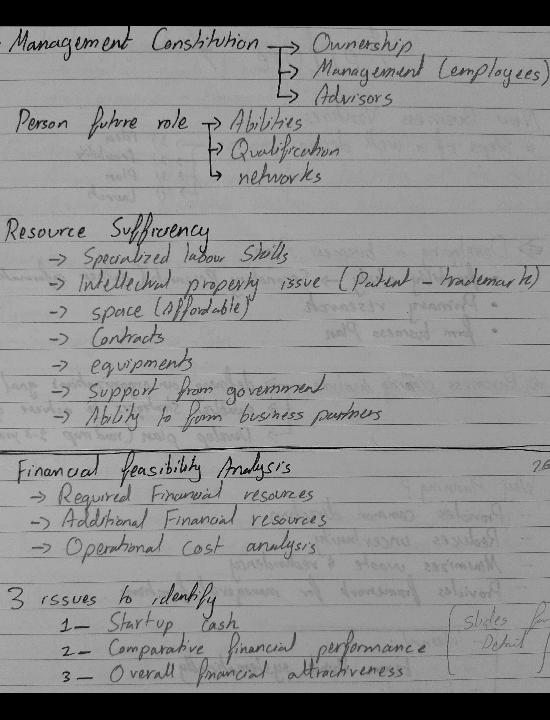 Management Constitution → Ownership
→ Management (employees)
→ Advisors
Person future role → Abilities
→ Qualification
→ networks
Resource Sufficiency
→ Specialized labour Skills
→ Intellectual property issue (Patent - trademark)
→ space (Affordable)
→ Contracts
→ equipments
→ Support from government
→ Ability to form business partners
Financial feasibility Analysis
→ Required Financial resources
→ Additional Financial resources
→ Operational Cost analysis
3 issues to identify
1 - Startup Cash
2 - Comparative financial performance
3 - Overall financial attractiveness
Slides for
Detail